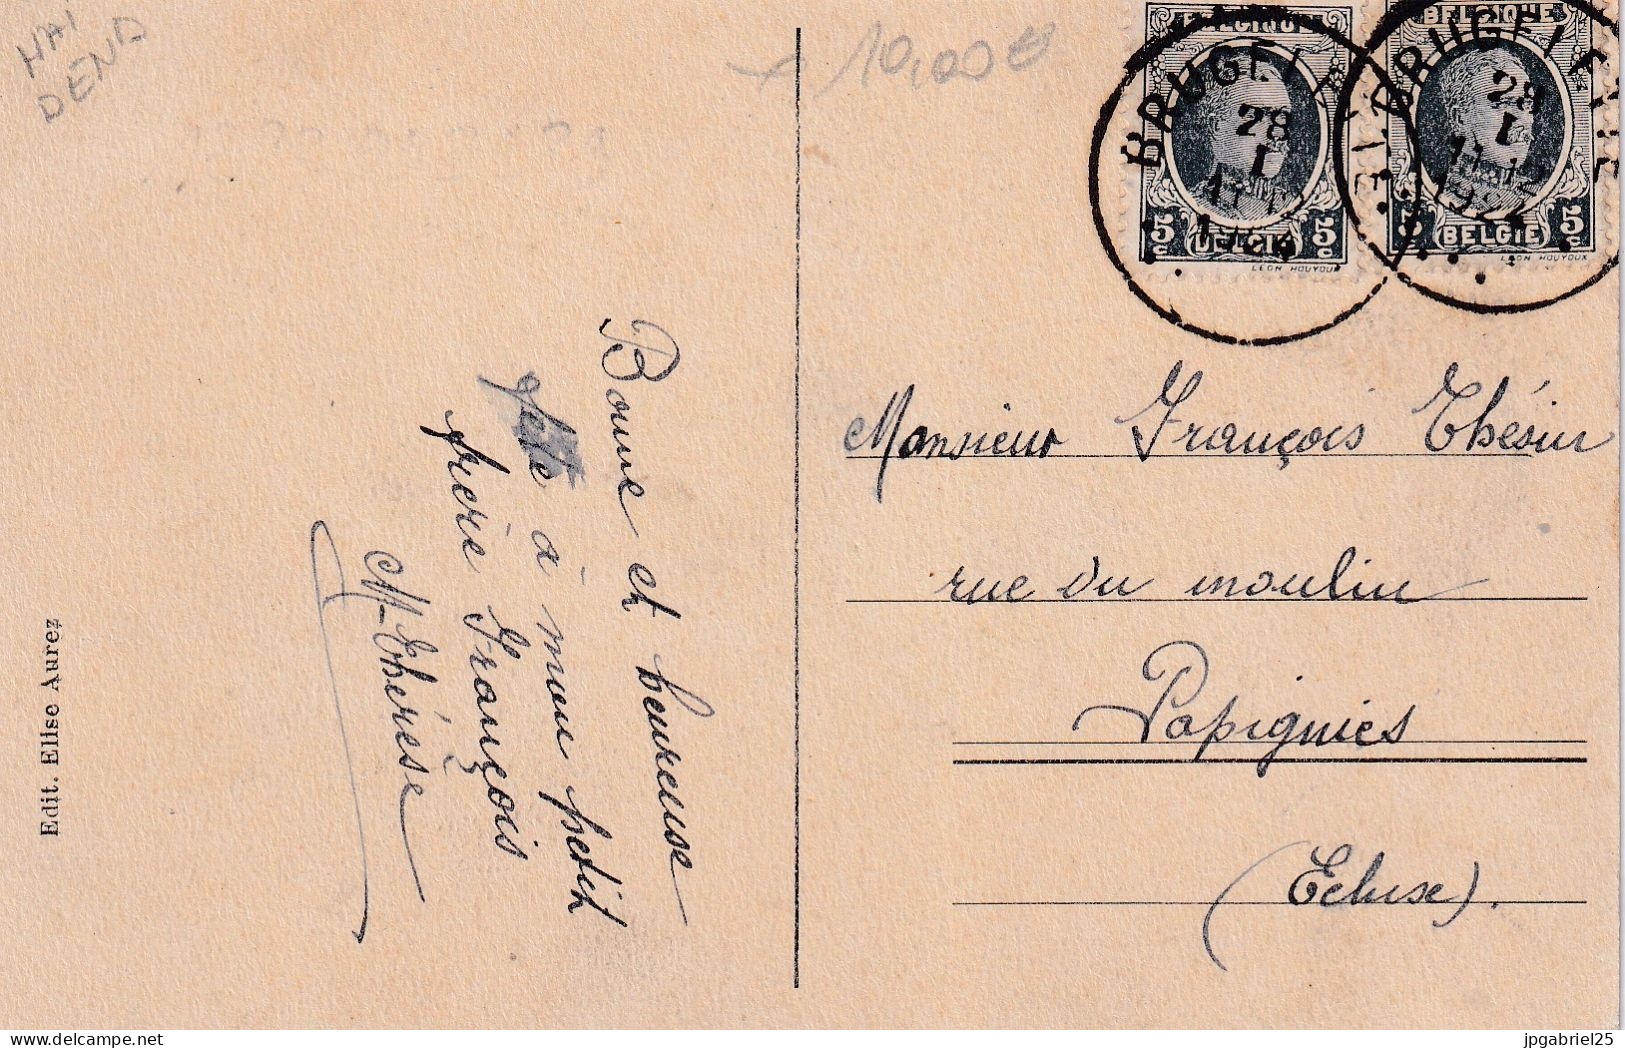 HAI
DEND
10,00€
BELGIQUE
BELGIQUE
BRUGELE
28
I
5c BELGIË 5c
LEON HOUYOUX
BRUGELETTE
28
I
11-12
1924
5c BELGIË 5c
LEON HOUYOUX
Bonne et heureuse
fête à mon petit
frère François
M-Thérèse
Monsieur François Thésin
rue du moulin
Papignies
(Ecluse).
Edit. Elise Aurez
www.delcampe.net
jpgabriel25